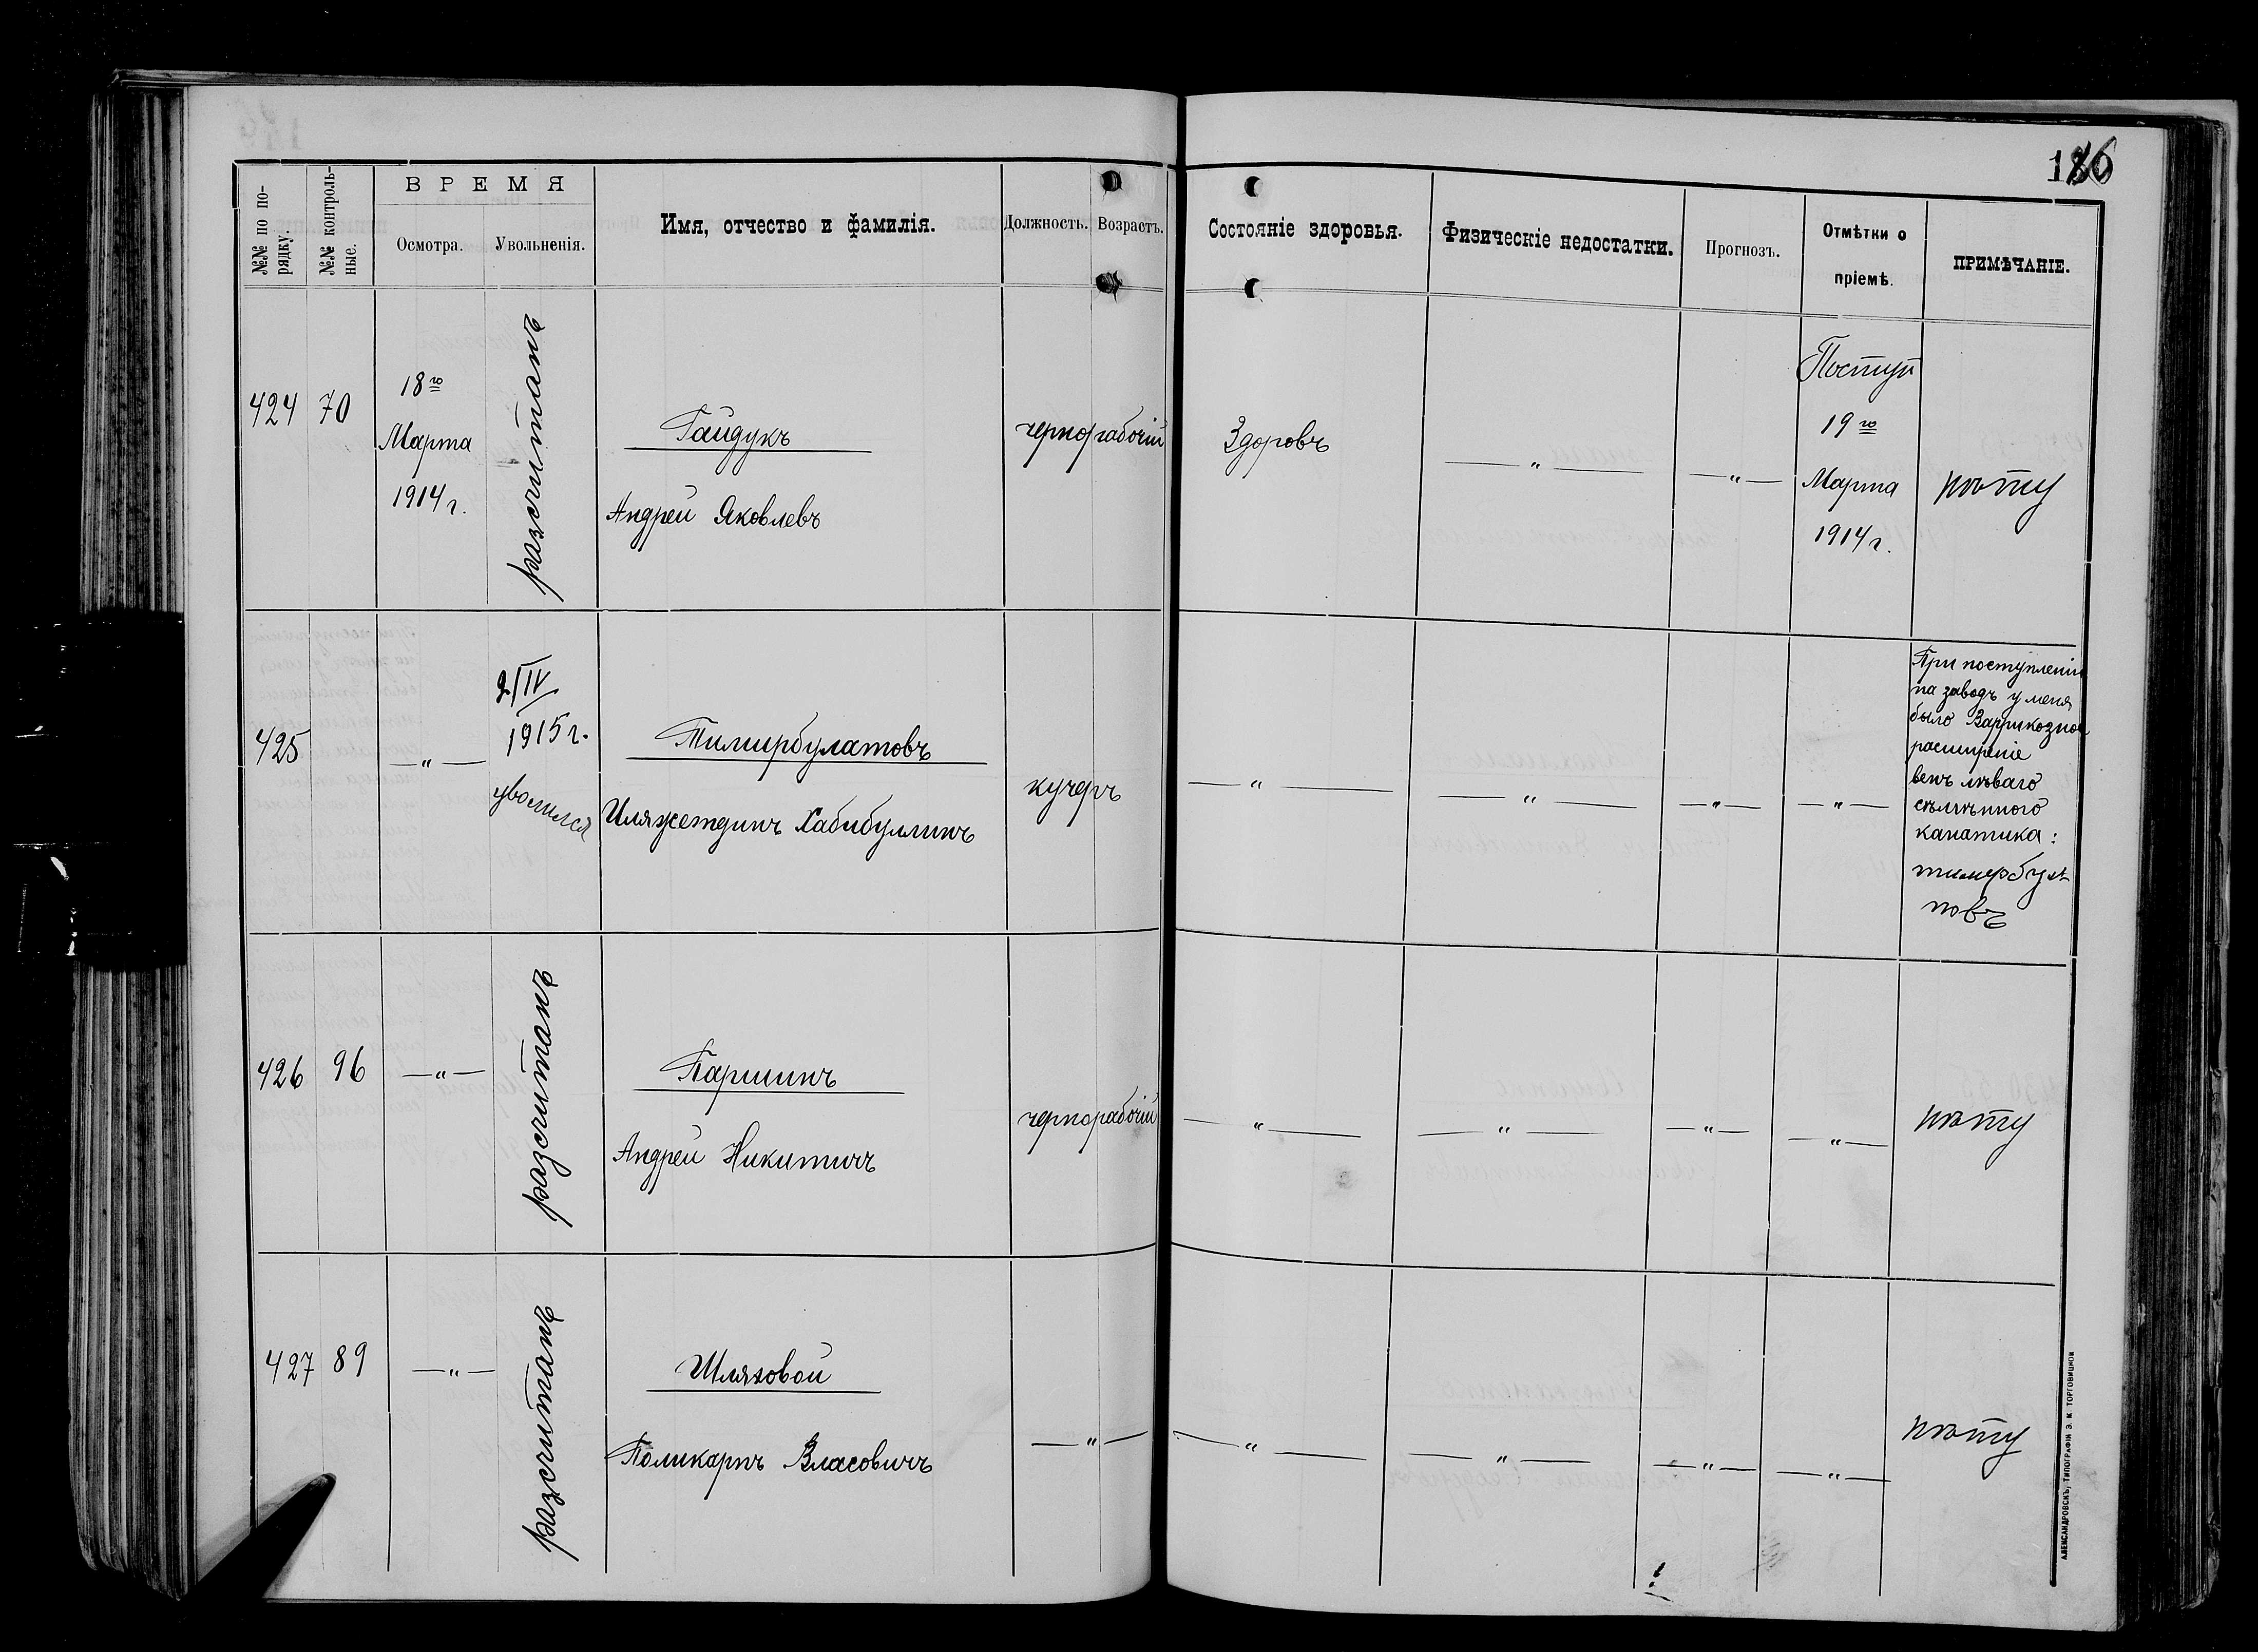 186
№№ по по-
рядку.
№№ контроль-
ные.
ВРЕМЯ
Осмотра.
Увольненія.
Имя, отчество и фамилія.
Должность.
Возрастъ.
Состояніе здоровья.
Физическіе недостатки.
Прогнозъ.
Отмѣтки о
пріемѣ.
ПРИМѢЧАНІЕ.
424
70
18го
Марта
1914 г.
разсчитанъ
Гайдукъ
Андрей Яковлевъ
чернорабочій
Здоровъ
— " —
— " —
Поступ
19го
Марта
1914 г.
нѣту
425
— " —
2/IV
1915 г.
уволился
Тимирбулатовъ
Иляжетдинъ Хабибуллинъ
кучеръ
— " —
— " —
— " —
— " —
При поступленіи
на заводъ у меня
было Варрикозное
расширеніе
венъ лѣваго
сѣмѣнного
канатика:
тимербула
товъ
426
96
— " —
разсчитанъ
Паршинъ
Андрей Никитичъ
чернорабочій
— " —
— " —
— " —
— " —
нѣту
427
89
— " —
разсчитанъ
Шляховой
Поликарпъ Власовичъ
— " —
— " —
— " —
— " —
— " —
нѣту
АЛЕКСАНДРОВСКЪ, ТИПОГРАФІЯ Э. М. ТОРГОВИЦКОЙ